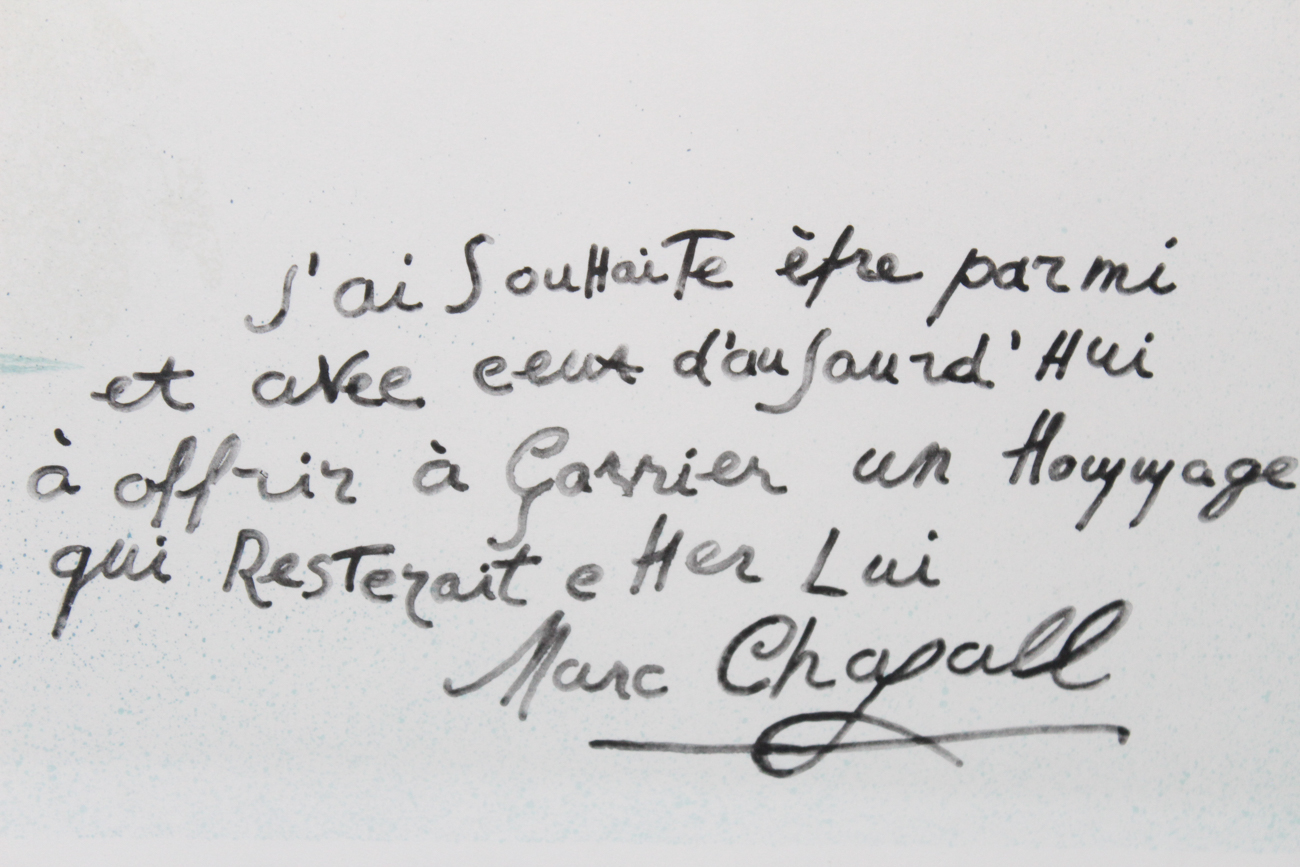 J'ai souHaiTe être parmi
et avec ceux d'aujourd'Hui
à offrir à Garnier un Hommage
qui ResTerait cHer Lui
Marc Chagall